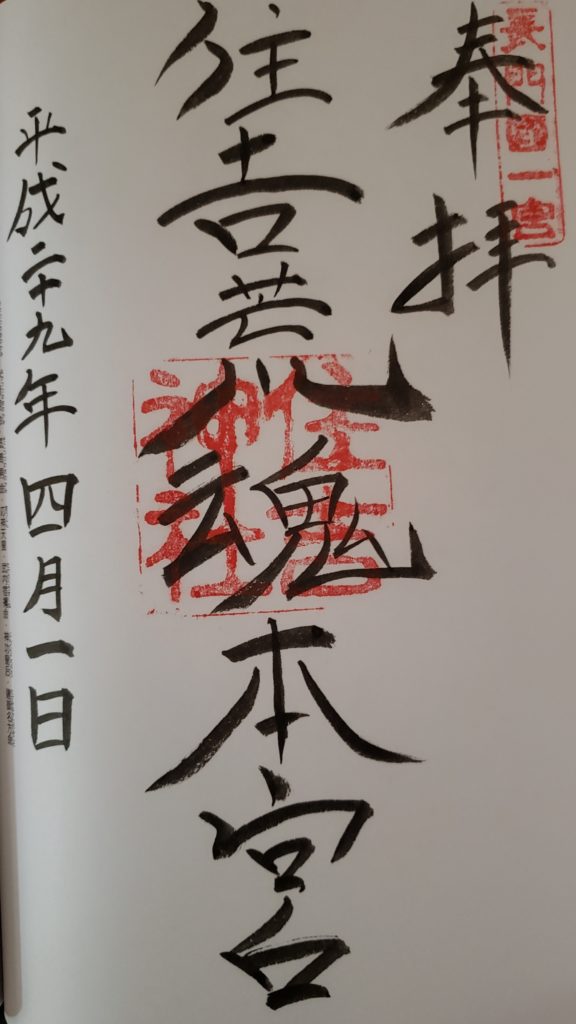 長門國一宮
奉拝
住吉荒魂本宮
住吉神社
平成二十九年四月一日